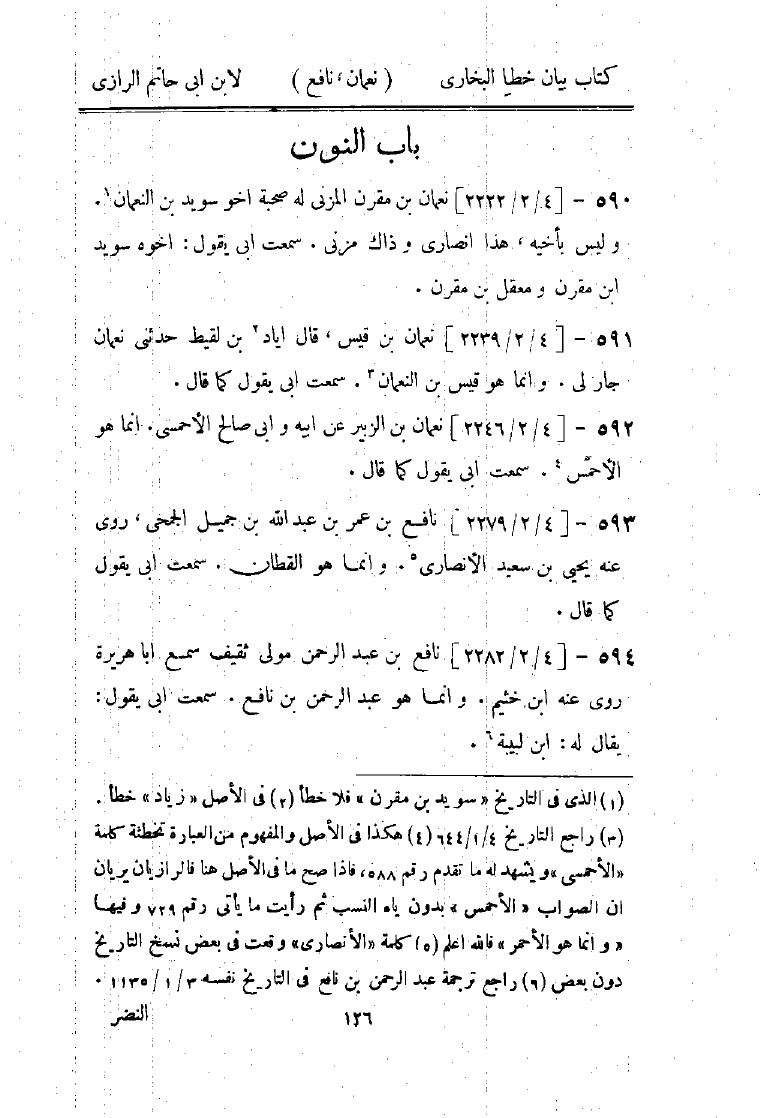 كتاب بيان خطا البخارى ( نعمان ، نافع ) لابن ابى حاتم الرازى
باب النون
٥٩٠ - [٢٢٢٢/٢/٤] نعمان بن مقرن المزنى له صحبة اخو سويد بن النعمان١ .
و ليس بأخيه ، هذا انصارى و ذاك مزنى . سمعت ابى يقول : اخوه سويد
ابن مقرن و معقل بن مقرن .
٥٩١ - [٢٢٣٩/٢/٤] نعمان بن قيس ، قال اياد٢ بن لقيط حدثنى نعمان
جار لى . و انما هو قيس بن النعمان٣ . سمعت ابى يقول كما قال .
٥٩٢ - [٢٢٤٦/٢/٤] نعمان بن الزبير عن ابيه و ابى صالح الأحمسى . انما هو
الأحمّس٤ . سمعت ابى يقول كما قال .
٥٩٣ - [٢٢٧٩/٢/٤] نافع بن عمر بن عبد الله بن جميل الجمحى ، روى
عنه يحيى بن سعيد الأنصارى٥ . و انما هو القطان . سمعت ابى يقول
كما قال .
٥٩٤ - [٢٢٨٢/٢/٤] نافع بن عبد الرحمن مولى ثقيف سمع ابا هريرة
روى عنه ابن خثيم . و انما هو عبد الرحمن بن نافع . سمعت ابى يقول :
يقال له : ابن لبيبة٦ .
(١) الذى فى التاريخ « سويد بن مقرن » فلا خطأ (٢) فى الأصل « زياد » خطأ .
(٣) راجع التاريخ ٦٤٤/١/٤ (٤) هكذا فى الأصل والمفهوم من العبارة تخطئة كلمة
«الأحمسى » ويشهد له ما تقدم رقم ٥٨٨، فاذا صح ما فى الأصل هنا فالرازيان يريان
ان الصواب « الأحمس » بدون ياء النسب ثم رأيت ما يأتى رقم ٧٢٩ و فيها
« و انما هو الأحمر » فالله اعلم (٥) كلمة «الأنصارى» وقعت فى بعض نسخ التاريخ
دون بعض (٦) راجع ترجمة عبد الرحمن بن نافع فى التاريخ نفسه ١١٣٥/١/٣ .
١٢٦ النضر